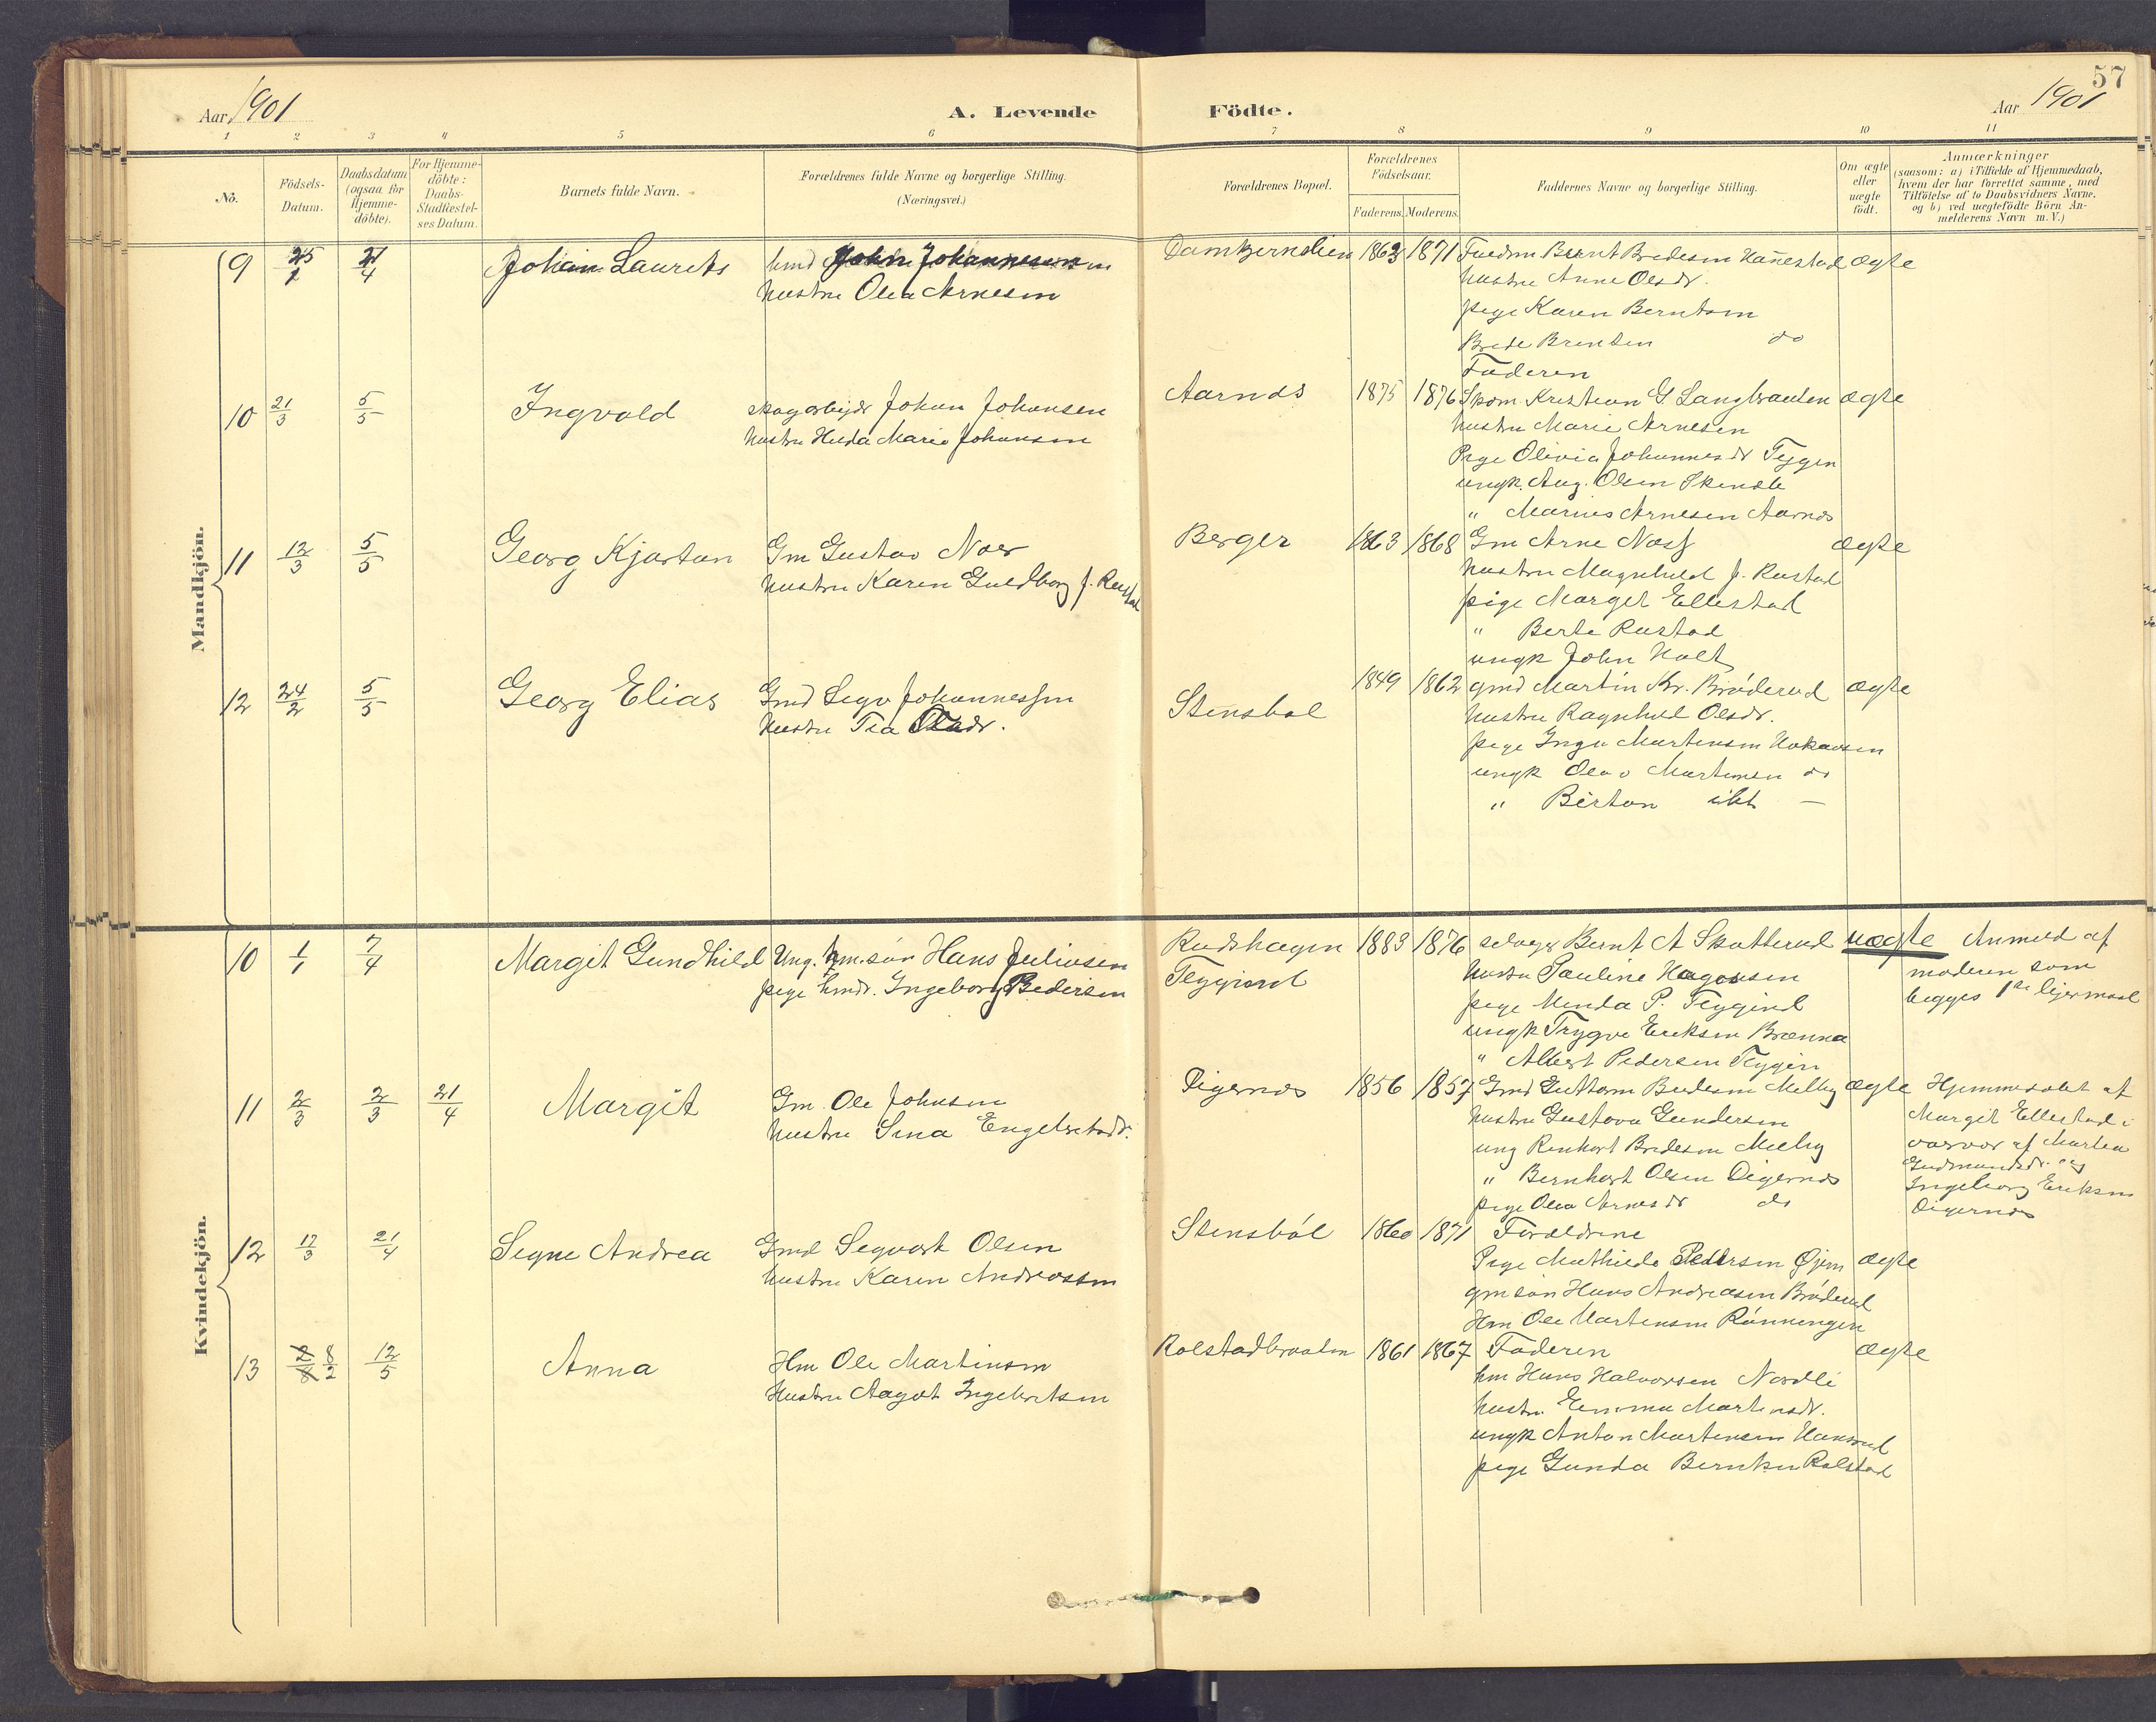 57
Aar 1901
A. Levende Födte.
Aar 1901
1 2 3 4 5 6 7 8 9 10 11
No.
Födsels-
Datum.
Daabsdatum
(ogsaa for
Hjemme-
döbte).
For Hjemme-
döbte:
Daabs-
Stadfæstel-
ses Datum.
Barnets fulde Navn.
Forældrenes fulde Navne og borgerlige Stilling.
(Næringsvei.)
Forældrenes Bopæl.
Forældrenes
Födselsaar.
Faderens. Moderens.
Faddernes Navne og borgerlige Stilling.
Om ægte
eller
uægte
födt.
Anmærkninger
(saasom: a) i Tilfælde af Hjemmedaab,
hvem der har forrettet samme, med
Tilföielse af to Daabsvidners Navne,
og b) ved uægtefödte Börn An-
melderens Navn m. V.)
Mandkjön.
9 21/4 Johan Laurits
hmd John Johannesen
hustru Olea Arnesen
1863 1871
Bernt Bredesen
hustru Anne Olsdr.
pige Karen Berntsen
Brede Brentsen do
Faderen
ægte
10 21/3 5/5 Ingvald
skogarbejdr Johan Johansen
hustru Hilda Marie Johansen
Aarnæs 1875 1876
Kristian G Langbraaten
hustru Marie Arnesen
Pige Olivia Johannesdr
ungk. Aug. Olsen
" Marius Arnesen Aarnæs
ægte
11 12/3 5/5 Georg Kjartan
Gm Gustav Noer
hustru Karen Guldborg f. Rustad
Berger 1863 1868
Gm Arne Næss
hustru Magnhild f. Rustad
pige Margit Ellestad
" Berte Rustad
ungk John Holt
ægte
12 24/2 5/5 Georg Elias
Gmd Johannessen
hustru Tea
Stensbøl 1849 1862
gmd Martin Kr. Brøderud
hustru Ragnhild Olsdr.
pige Inga Martinsen
ungk Olav Martinsen do
" Birton
ægte
Kvindekjön.
10 1/1 7/4 Margit Gundhild
Ung. hm.søn Hans Juliusen
pige hmdr. Ingeborg Pedersen
Rudshagen
1883 1876
Bernt A Skotterud
hustru Pauline Hagensen
pige Minda P.
ungk Trygve Eriksen Brænna
" Albert Pedersen
uægte
Anmeld af
moderen som
begges 1ste lejermaal
11 2/3 2/3 21/4 Margit
Gm. Ole Johnsen
hustru Sina Engebretsdr.
Digernæs 1856 1857
Gmd Guttorm Melby
hustru Gustava Gundersen
ung Bredesen Melby
" Bernhart Olsen Digernæs
pige Olea Arnesdr do
ægte
Hjemmedøbt af
Margit Ellestad i
nærvær af Martea
Gudmundsdr. og
Ingeborg Eriksen
Digernæs
12 17/3 21/4 Signe Andrea
Gmd Segvart Olsen
hustru Karen Andreassen
Stensbøl 1860 1871
Forældrene
Pige Mathilde Pedersen
gm søn Hans Andreasen Brøderud
Hm Ole Martinsen Rønningen
ægte
13 2/8 8/2 12/5 Anna
Hm Ole Martinsen
Hustru Aagot Ingebretsen
Rolstadbraaten 1861 1867
Faderen
hm Hans Halvorsen Nordli
hustru Emma Martinsdr.
ungk Anton Martinsen
pige Gunda Berntsen Rolstad
ægte